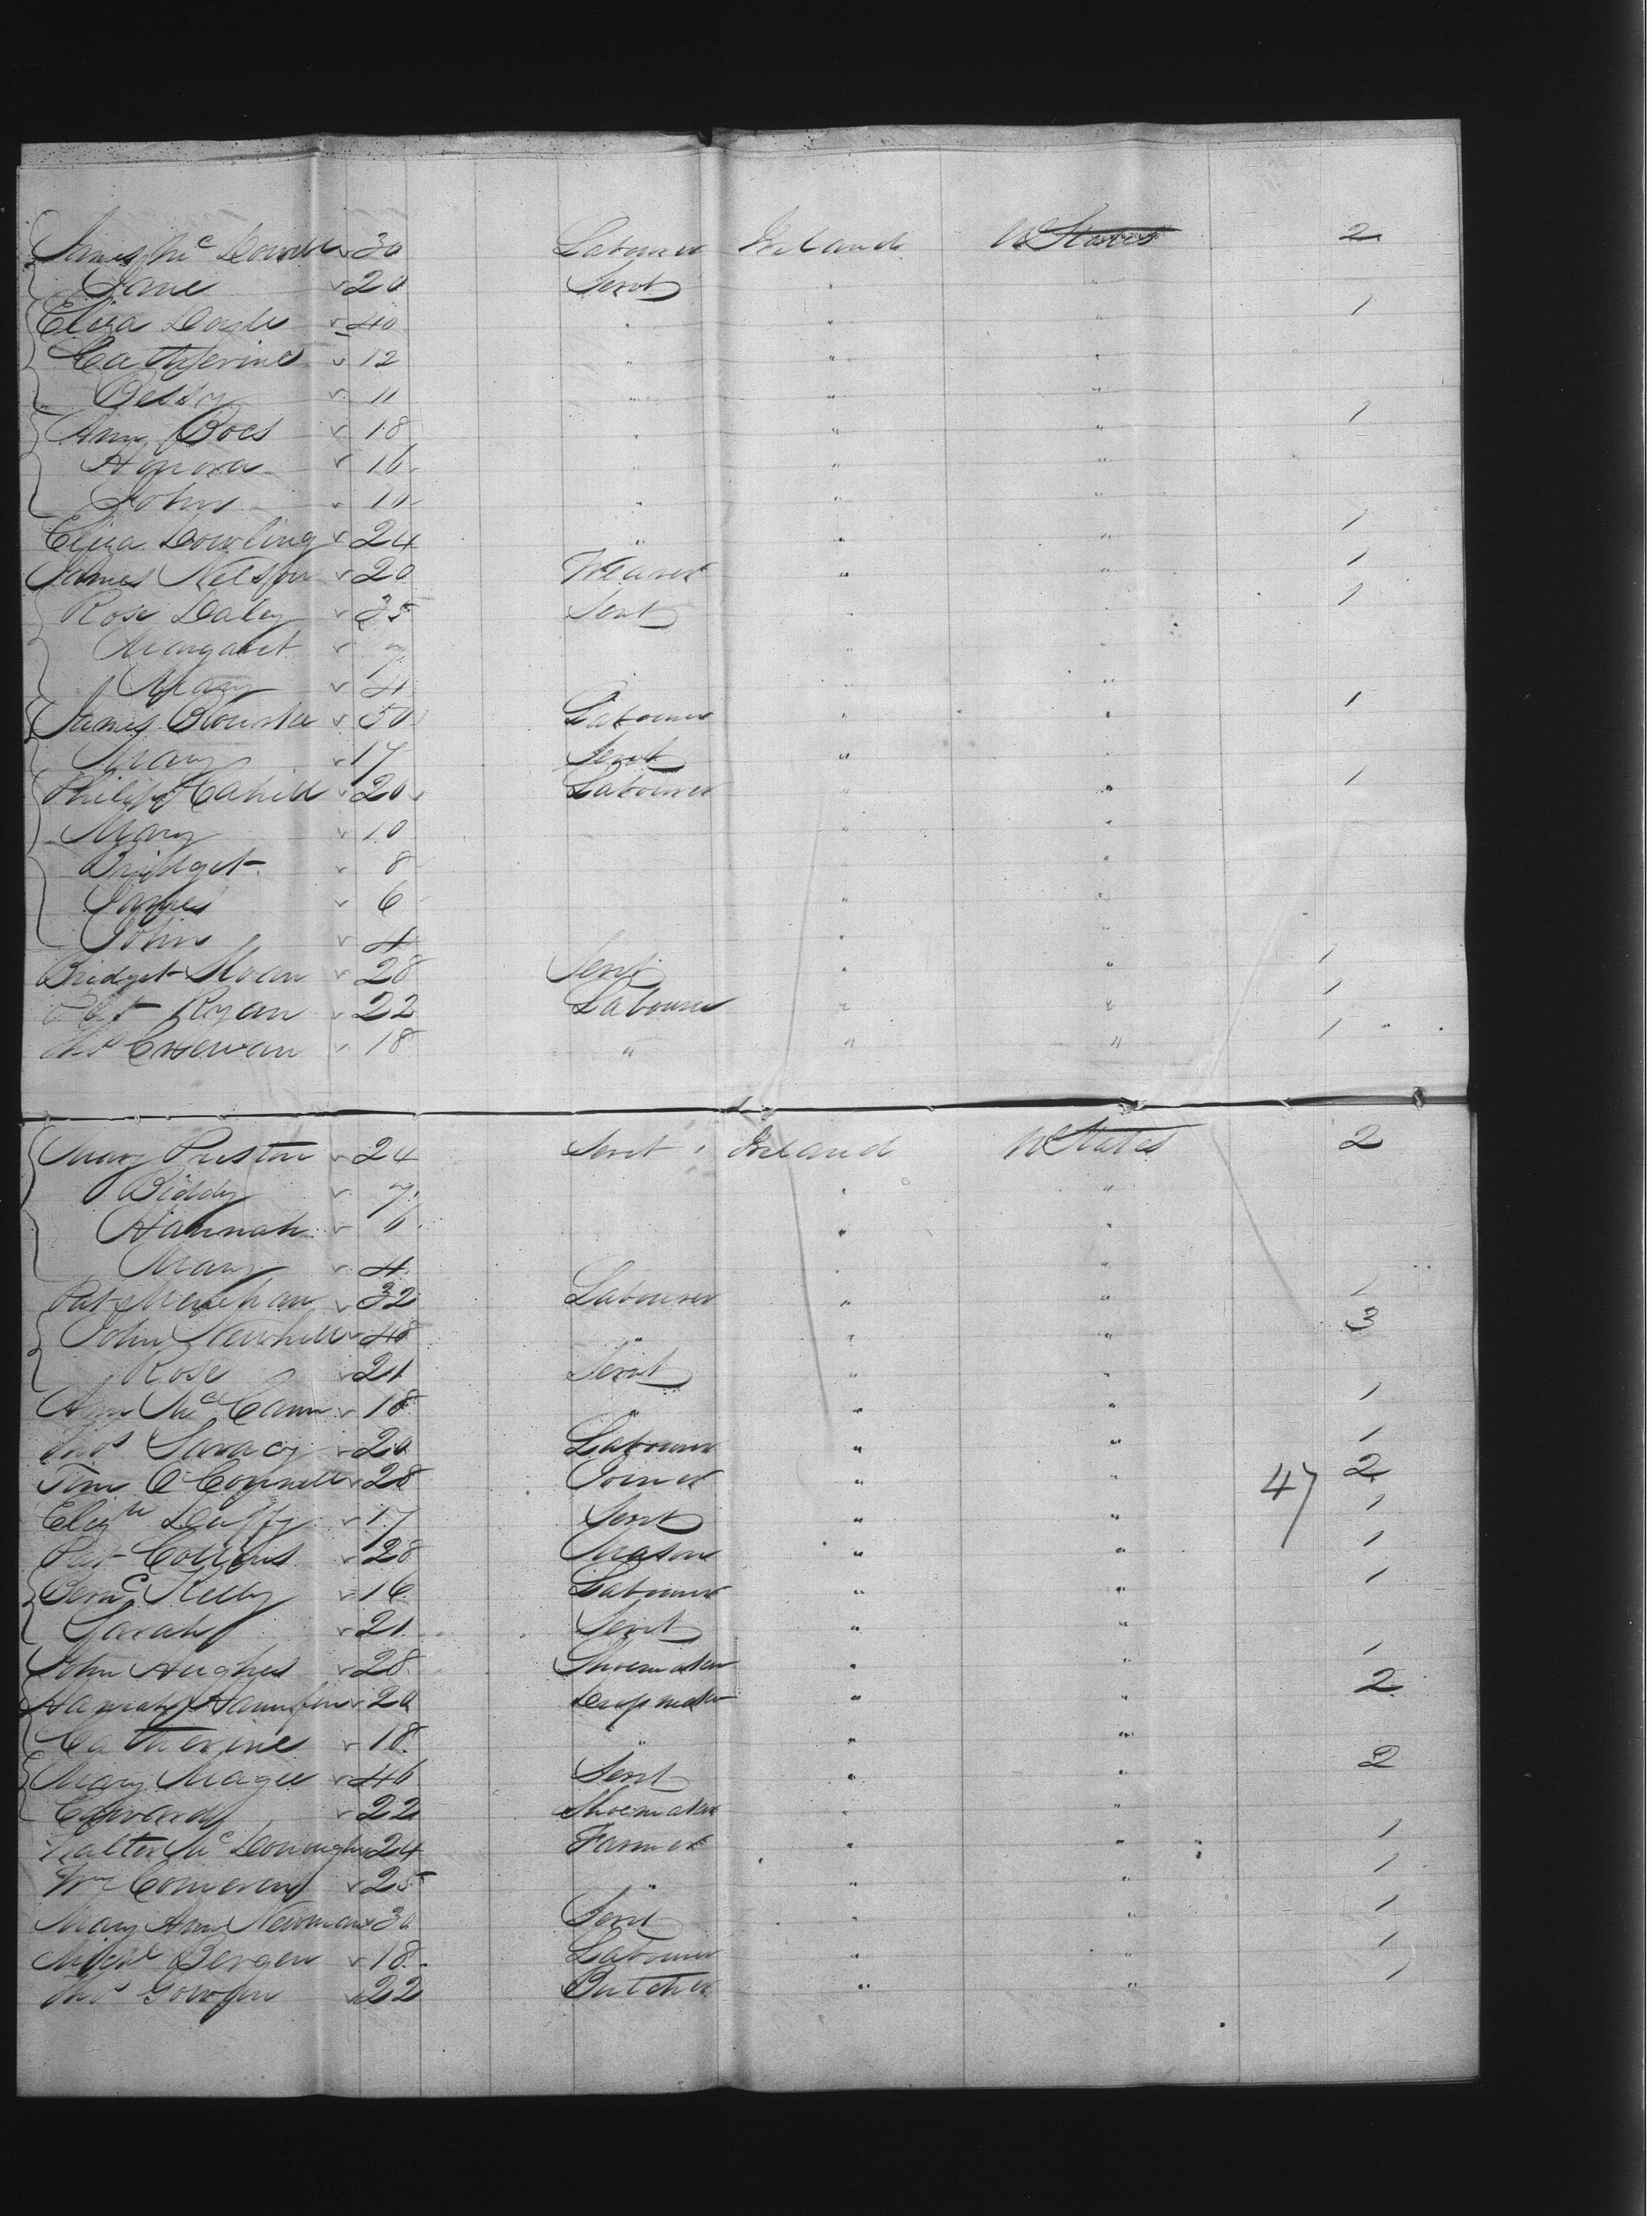 James Mc Donnell 30 Labourer Ireland U States 2
Jane 20 Servt "
Eliza Doyle 40 " " " 1
Catherine 12 " " "
Bessy 11 " " "
Ann Boes 18 " " " 1
Honora 16 " " "
John 10 " " "
Eliza Dowling 24 " " " 1
James Nelson 20 Weaver " " 1
Rose Daley 35 Servt " " 1
Margaret 7 "
Mary 4 " "
James Rourke 50 Labourer " " 1
Mary 17 Servt " "
Philip Cahill 20 Labourer " " 1
Mary 10 " "
Bridget 8 " "
James 6 " "
John 4 " "
Bridget Sloan 28 Servt " " 1
Pat Ryan 22 Labourer " " 1
Thos 18 " " " 1
Mary Preston 24 Servt Ireland U States 2
Biddy 7 " "
Hannah 6 " "
Mary 4 " "
Pat 32 Labourer " " 1
John Newhill 48 " " " 3
Rose 21 Servt " "
Ann Mc Cann 18 " " " 1
Thos 20 Labourer " " 1
Tim O'Connell 28 Joiner " " 2
47
Elizth Duffy 17 Servt " " 1
Pat Collins 28 Mason " " 1
Kelly 16 Labourer " " 1
Sarah 21 Servt " "
John Hughes 28 Shoemaker " " 1
Hannah 20 " " 2
Catherine 18 " " "
Mary Magee 46 Servt " " 2
Edward 22 Shoemaker " "
Walter Mc Donough 24 Farmer " " 1
Wm 25 " " " 1
Mary Ann Newman 30 Servt " " 1
Michl Bergen 18 Labourer " " 1
Thos 22 Butcher " " 1